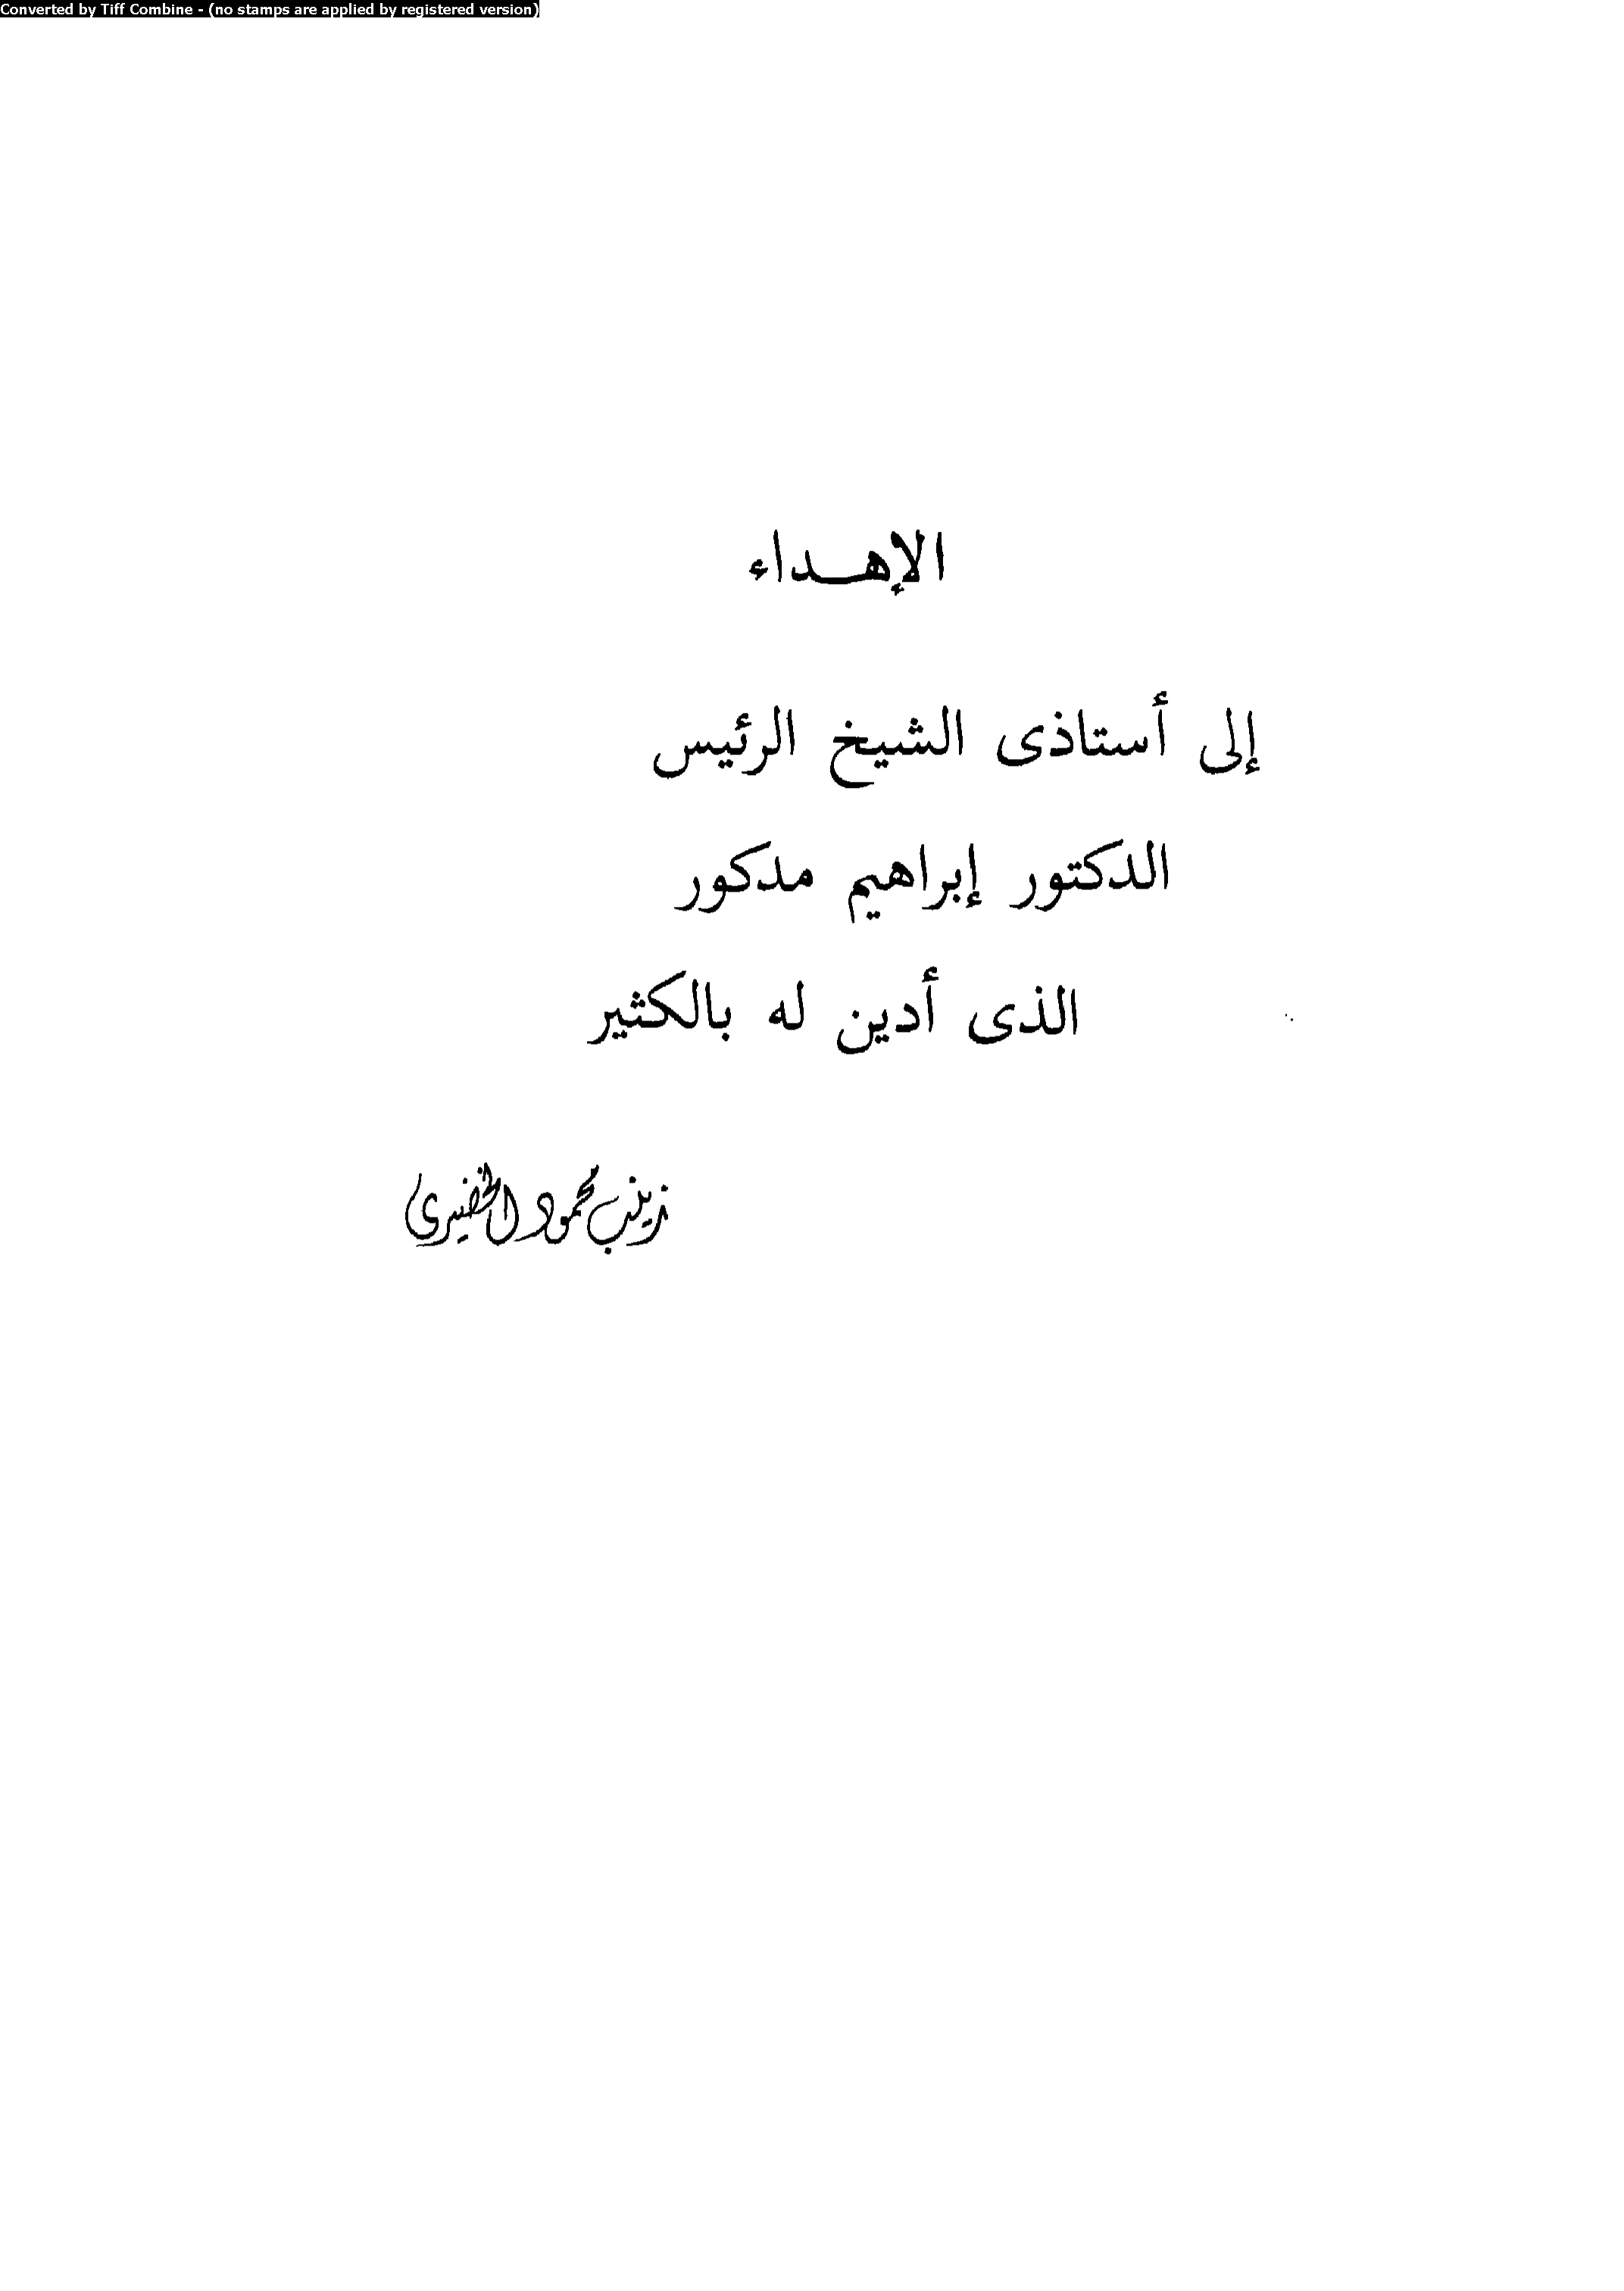 Converted by Tiff Combine - (no stamps are applied by registered version)
الإهـداء
إلى أستاذى الشيخ الرئيس
الدكتور إبراهيم مدكور
الذى أدين له بالكثير
زينب محمود الخضيري